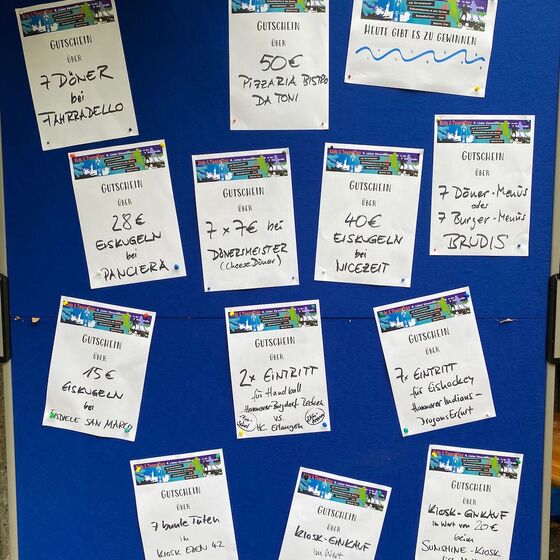 GUTSCHEIN
ÜBER
7 DÖNER
bei
FAHRRADELLO
GUTSCHEIN
ÜBER
50€
PIZZARIA BISTRO
DA TONI
HEUTE GIBT ES ZU GEWINNEN
GUTSCHEIN
ÜBER
28€
EISKUGELN
BEI
PANCIERA
GUTSCHEIN
ÜBER
7 x 7€ bei
DÖNERSMEISTER
(Cheese Döner)
GUTSCHEIN
ÜBER
40€
EISKUGELN
bei
NICEZEIT
GUTSCHEIN
ÜBER
7 Döner-Menüs
oder
7 Burger-Menüs
BRUDIS
GUTSCHEIN
ÜBER
15€
EISKUGELN
bei
EISDIELE SAN MARCO
GUTSCHEIN
ÜBER
2x EINTRITT
für Handball
Hannover-Burgdorf Recken
vs.
HC Erlangen
GUTSCHEIN
ÜBER
7x EINTRITT
für Eishockey
Hannover Indians -
Dragons Erfurt
GUTSCHEIN
ÜBER
7 bunte Tüten
im
KIOSK EDEN 42
GUTSCHEIN
ÜBER
KIOSK-EINKAUF
im Wert
GUTSCHEIN
ÜBER
KIOSK-EINKAUF
im Wert von 20€
beim
SUNSHINE-KIOSK